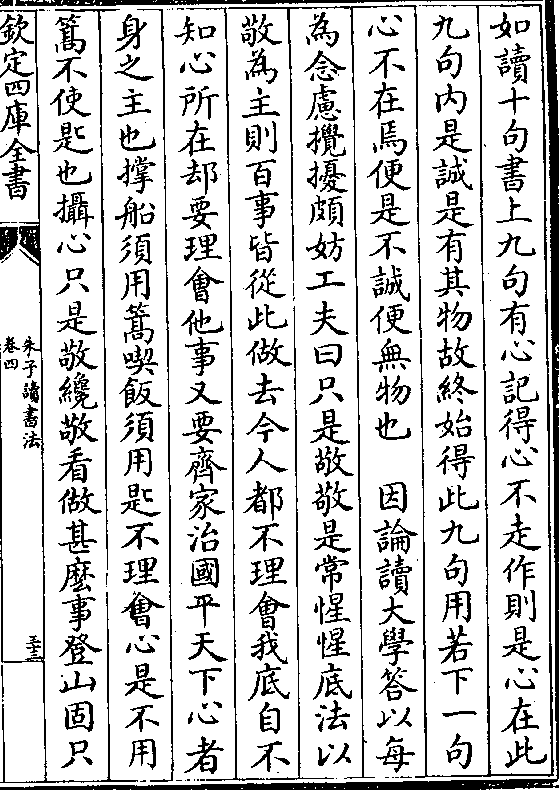 如讀十句書上九句有心記得心不走作則是心在此
九句内是誠是有其物故終始得此九句用若下一句
心不在焉便是不誠便無物也　因論讀大學答以每
為念慮攪擾頗妨工夫曰只是敬敬是常惺惺底法以
敬為主則百事皆從此做去今人都不理會我底自不
知心所在却要理會他事又要齊家治國平天下心者
身之主也撑船須用篙喫飯須用匙不理會心是不用
篙不使匙也攝心只是敬纔敬看做甚麽事登山固只
欽定四庫全書
朱子讀書法
卷四
三十三